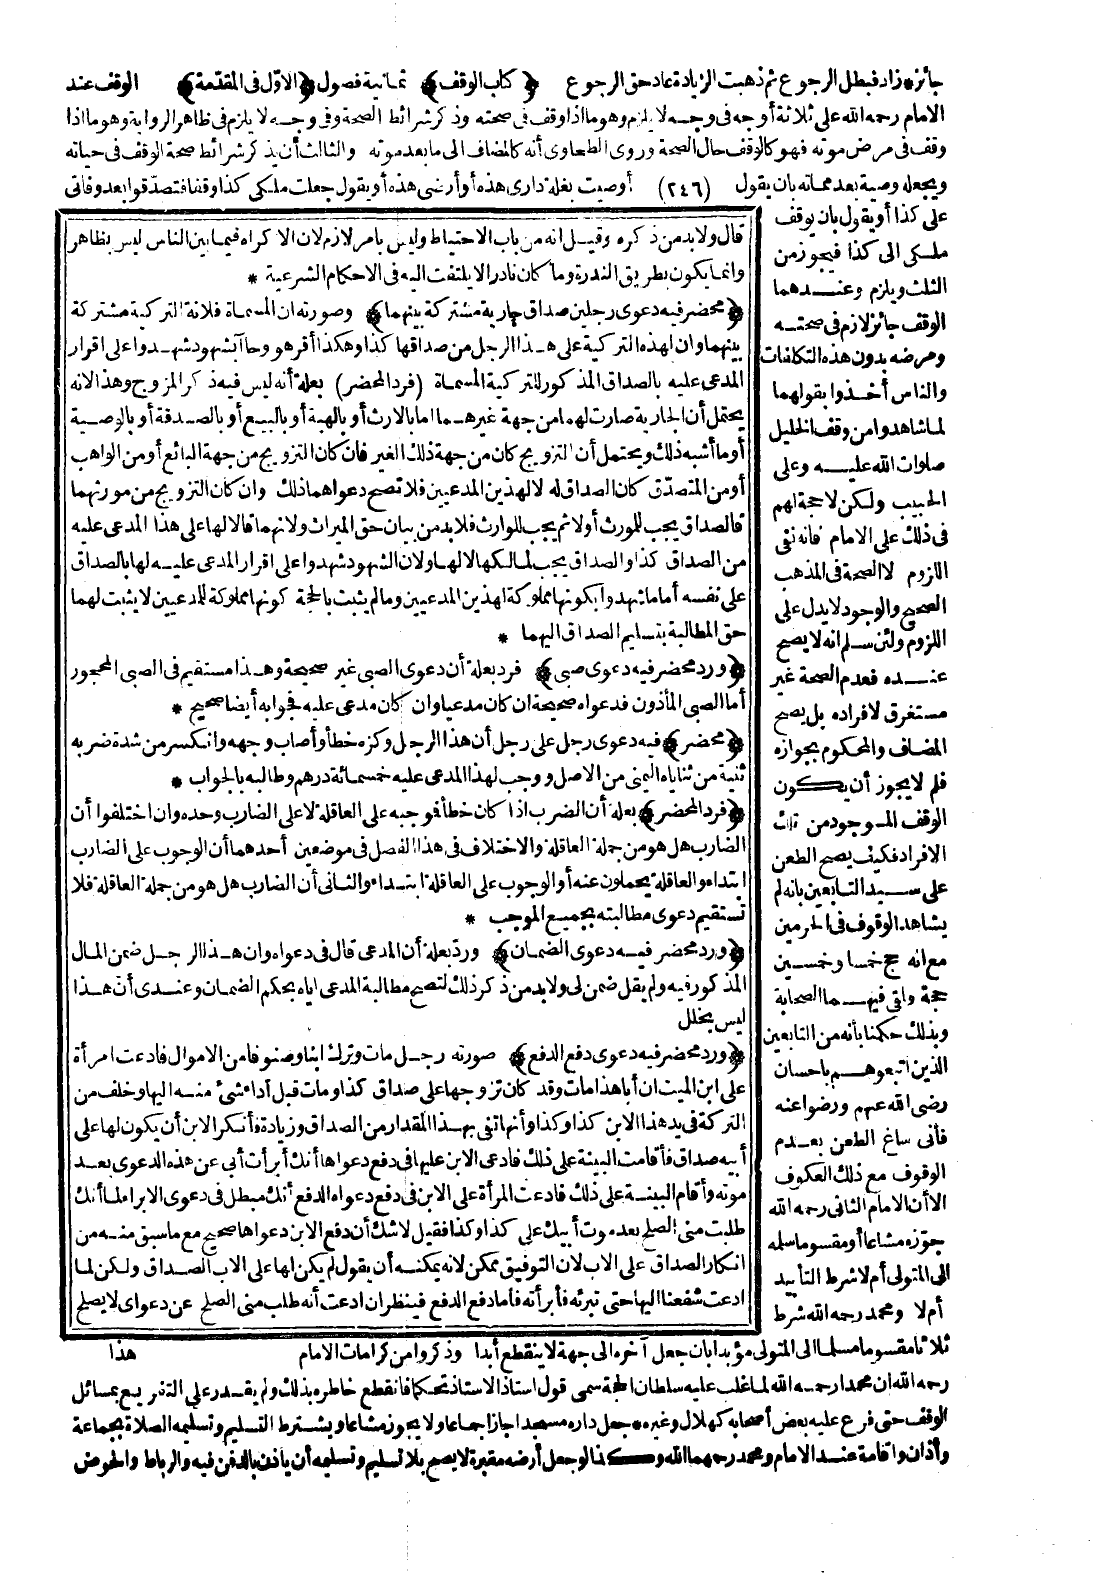 جائز * زاد فبطل الرجوع ثم ذهبت الزيادة عاد حق الرجوع ﴿كتاب الوقف﴾ ثمانية فصول ﴿الاول فى المقدمة﴾ الوقف عند
الامام رحمه الله على ثلاثة أوجه فى وجه لا يلزم وهو ما اذا وقف فى صحته وذكر شرائط الصحة وفى وجه لا يلزم فى ظاهر الرواية وهو ما اذا
وقف فى مرض موته فهو كالوقف حال الصحة وروى الطحاوى أنه كالمضاف الى ما بعد موته والثالث أن يذكر شرائط صحة الوقف فى حياته
ويجعله وصية بعد مماته بان يقول (٢٤٦) أوصيت بغلة دارى هذه أو أرضى هذه أو يقول جعلت ملكى كذا وقفا فتصدقوا بعد وفاتى
على كذا أو يقول بان يوقف
ملكى الى كذا فيجوز من
الثلث ويلزم وعندهما
الوقف جائز لازم فى صحته
ومرضه بدون هذه التكلفات
والناس أخذوا بقولهما
لما شاهدوا من وقف الخليل
صلوات الله عليه وعلى
الحبيب ولكن لا حجة لهم
فى ذلك على الامام فانه نفى
اللزوم لا الصحة فى المذهب
الصحيح والوجود لا يدل على
اللزوم ولئن سلم انه لا يصح
عنده فعدم الصحة غير
مستغرق لافراده بل يصح
المضاف والمحكوم بجوازه
فلم لا يجوز أن يكون
الوقف الموجود من تلك
الافراد فكيف يصح الطعن
على سيد التابعين بانه لم
يشاهد الوقوف فى الحرمين
مع انه حج خمسا وخمسين
حجة ولقى فيهما الصحابة
وبذلك حكمنا بأنه من التابعين
الذين اتبعوهم باحسان
رضى الله عنهم ورضوا عنه
فأنى ساغ الطعن بعدم
الوقوف مع ذلك العكوف
الا أن الامام الثانى رحمه الله
جوزه مشاعا أو مقسوما سلمه
الى المتولى أم لا شرط التأبيد
أم لا ومحمد رحمه الله شرط
قال ولا بد من ذكره وقيل انه من باب الاحتياط وليس بامر لازم لان الاكراه فيما بين الناس ليس بظاهر
وانما يكون بطريق الندرة وما كان نادرا لا يلتفت اليه فى الاحكام الشرعية *
﴿محضر فيه دعوى رجلين صداق جارية مشتركة بينهما﴾ وصورته ان المسماة فلانة التركية مشتركة
بينهما وان لهذه التركية على هذا الرجل من صداقها كذا وهكذا أقر هو وجاآ بشهود شهدوا على اقرار
المدعى عليه بالصداق المذكور للتركية المسماة (فرد المحضر) بعلة أنه ليس فيه ذكر المزوج وهذا لانه
يحتمل أن الجارية صارت لهما من جهة غيرهما اما بالارث أو بالهبة أو بالبيع أو بالصدقة أو بالوصية
أو ما أشبه ذلك ويحتمل أن التزويج كان من جهة ذلك الغير فان كان التزويج من جهة البائع أو من الواهب
أو من المتصدق كان الصداق له لا لهذين المدعيين فلا تصح دعواهما ذلك وان كان التزويج من مورثهما
فالصداق يجب للمورث أولا ثم يجب للوارث فلا بد من بيان حق الميراث ولانهما قالا لها على هذا المدعى عليه
من الصداق كذا والصداق يجب لمالكها لا لها ولان الشهود شهدوا على اقرار المدعى عليه لها بالصداق
على نفسه أما ما شهدوا بكونها مملوكة لهذين المدعيين وما لم يثبت بالحجة كونها مملوكة للمدعيين لا يثبت لهما
حق المطالبة بتسليم الصداق اليهما *
﴿ورد محضر فيه دعوى صبى﴾ فرد بعلة أن دعوى الصبى غير صحيحة وهذا مستقيم فى الصبى المحجور
أما الصبى المأذون فدعواه صحيحة ان كان مدعيا وان كان مدعى عليه فجوابه أيضا صحيح *
﴿محضر﴾ فيه دعوى رجل على رجل أن هذا الرجل وكزه خطأ وأصاب وجهه وانكسر من شدة ضربه
ثنية من ثناياه اليمنى من الاصل ووجب لهذا المدعى عليه خمسمائة درهم وطالبه بالجواب *
﴿فرد المحضر﴾ بعلة أن الضرب اذا كان خطأ فموجبه على العاقلة لا على الضارب وحده وان اختلفوا أن
الضارب هل هو من جملة العاقلة والاختلاف فى هذا الفصل فى موضعين أحدهما أن الوجوب على الضارب
ابتداء والعاقلة يحملون عنه أو الوجوب على العاقلة ابتداء والثانى أن الضارب هل هو من جملة العاقلة فلا
تستقيم دعوى مطالبته بجميع الموجب *
﴿ورد محضر فيه دعوى الضمان﴾ ورد بعلة أن المدعى قال فى دعواه وان هذا الرجل ضمن المال
المذكور فيه ولم يقل ضمن لى ولا بد من ذكر ذلك لتصح مطالبة المدعى اياه بحكم الضمان وعندى أن هذا
ليس بخلل
﴿ورد محضر فيه دعوى دفع الدفع﴾ صورته رجل مات وترك ابنا وصنوفا من الاموال فادعت امرأة
على ابن الميت ان أبا هذا مات وقد كان تزوجها على صداق كذا ومات قبل أداء شئ منه اليها وخلف من
التركة فى يد هذا الابن كذا وكذا وأنها تفى بهذا المقدار من الصداق وزيادة فأنكر الابن أن يكون لها على
أبيه صداق فأقامت البينة على ذلك فادعى الابن عليها فى دفع دعواها أنك أبرأت أبى عن هذه الدعوى بعد
موته وأقام البينة على ذلك فادعت المرأة على الابن فى دفع دعواه الدفع أنك مبطل فى دعوى الابراء لما أنك
طلبت منى الصلح بعد موت أبيك على كذا وكذا فقيل لا شك أن دفع الابن دعواها صحيح مع ما سبق منه من
انكار الصداق على الاب لان التوفيق ممكن لانه يمكنه أن يقول لم يكن لها على الاب الصداق ولكن لما
ادعت شفعنا اليها حتى تبرئه فأبرأته فأما دفع الدفع فينظر ان ادعت أنه طلب منى الصلح عن دعواى لا يصلح
ثلاثا مقسوما مسلما الى المتولى مؤبدا بان جعل آخره الى جهة لا ينقطع أبدا وذكروا من كرامات الامام هذا
رحمه الله ان محمدا رحمه الله لما غلب عليه سلطان الحجة سمى قول استاذ الاستاذ تحكما فانقطع خاطره بذلك ولم يقدر على التفريع بمسائل
الوقف حتى فرع عليه بعض أصحابه كهلال وغيره * جعل داره مسجدا جاز اجماعا ولا يجوز مشاعا ويشترط التسليم وتسليمه الصلاة بجماعة
وأذان واقامة عند الامام ومحمد رحمهما الله وكذا لو جعل أرضه مقبرة لا يصح بلا تسليم وتسليمه أن يأذن بالدفن فيه والرباط والحوض